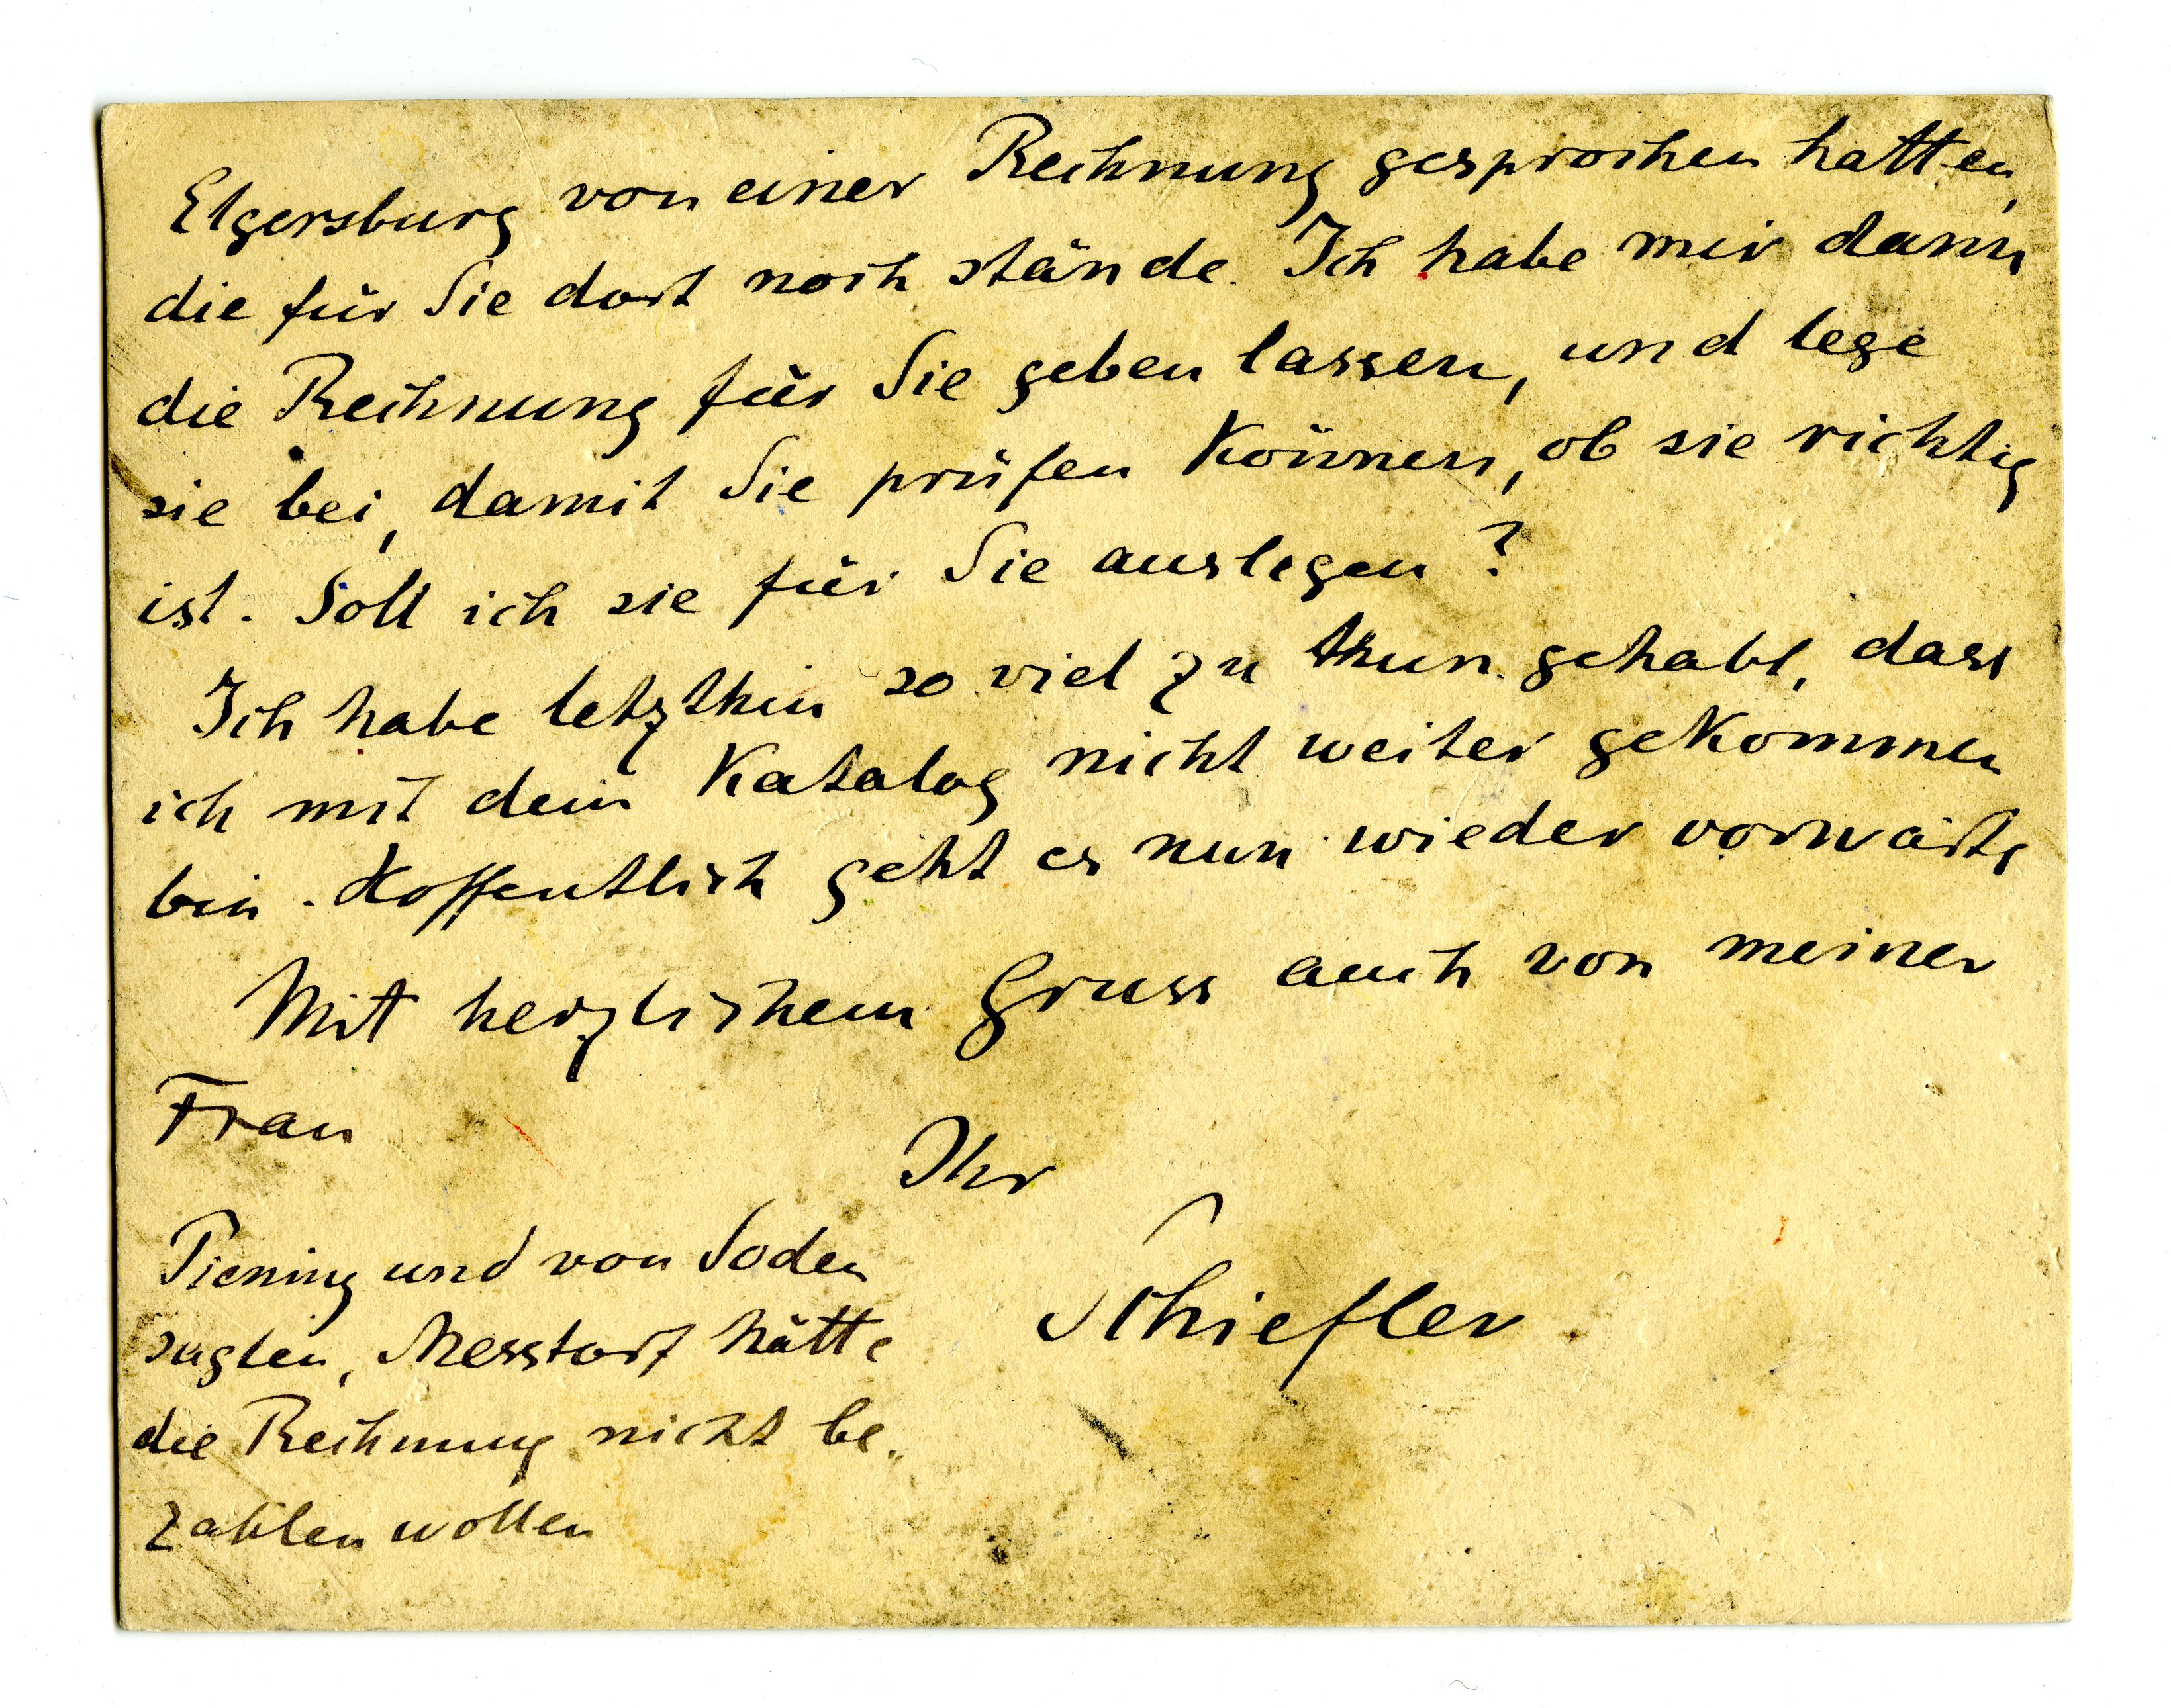 Elgersburg von einer Rechnung gesprochen hatten,
die für Sie dort noch stände. Ich habe mir dann
die Rechnung für Sie geben lassen, und lege
sie bei, damit Sie prüfen können, ob sie richtig
ist. Soll ich sie für Sie auslegen?
Ich habe letzthin so viel zu thun gehabt, dass
ich mit dem Katalog nicht weiter gekommen
bin. Hoffentlich geht es nun wieder vorwärts
Mit herzlichem Gruss auch von meiner
Frau
Ihr
Schiefler
Piening und von Soden
sagten, Messtorf hätte
die Rechnung nicht be„
zahlen wollen